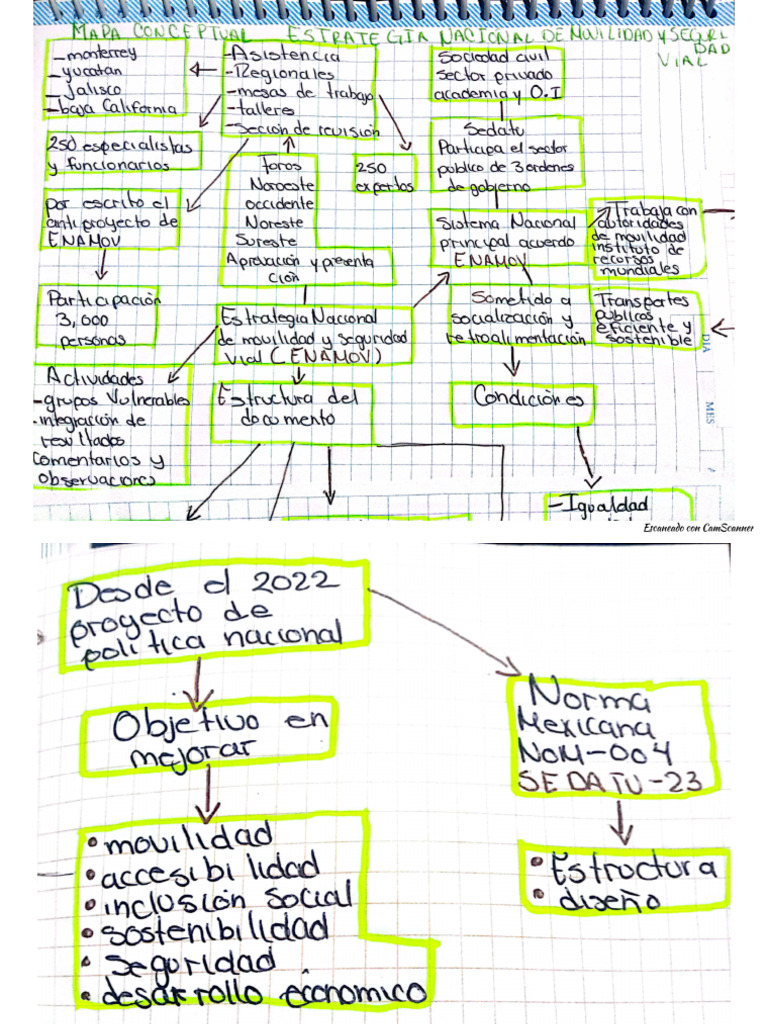 MAPA CONCEPTUAL ESTRATEGIA NACIONAL DE MOVILIDAD Y SEGURI
DAD
VIAL
-monterrey
-yucatan
-Jalisco
-baja California
-Asistencia
-Regionales
-mesas de trabajo
-talleres
-seción de revisión
Sociedad civil
sector privado
academia y O.I
250 especialistas
y funcionarios
Foros
Noroeste
occidente
Noreste
Sureste
Aprovación y presenta
ción
250
expertos
Sedatu
Participa el sector
público de 3 ordenes
de gobierno
por escrito el
anti proyecto de
ENAMOV
Sistema Nacional
principal acuerdo
ENAMOV
-Trabaja con
autoridades
de movilidad
instituto de
recursos
mundiales
Participación
3,000
personas
Estrategia Nacional
de movilidad y seguridad
vial (ENAMOV)
Sometido a
socialización y
retroalimentación
Transportes
publicos
eficiente y
sostenible
DIA
MES
Actividades
-grupos Vulnerables
-integración de
resultados
comentarios y
observaciones
Estructura del
documento
Condiciónes
-Igualdad
Escaneado con CamScanner
Desde el 2022
proyecto de
politica nacional
Objetivo en
mejorar
• movilidad
• accesibilidad
• inclusión social
• sostenibilidad
• seguridad
• desarrollo economico
Norma
Mexicana
NOM-004
SEDATU-23
• Estructura
• diseño